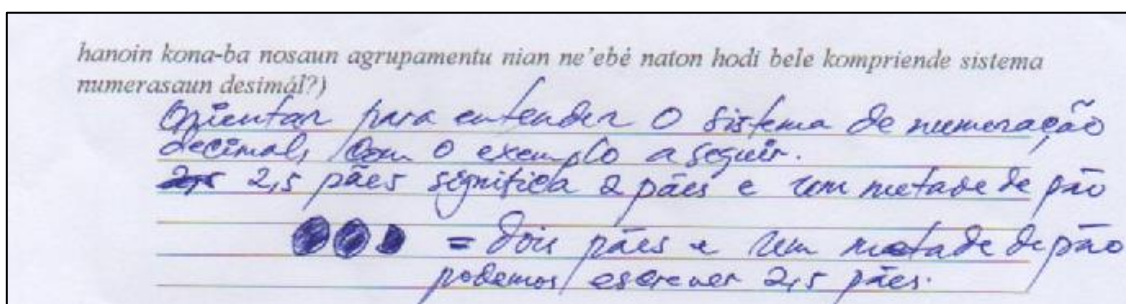 hanoin kona-ba nosaun agrupamentu nian ne'ebé naton hodi bele kompriende sistema
numerasaun desimál?)
Orientar para entender o sistema de numeração
decimal, com o exemplo a seguir.
2,5 2,5 pães significa 2 pães e um metade de pão
= dois pães e um metade de pão
podemos escrever 2,5 pães.